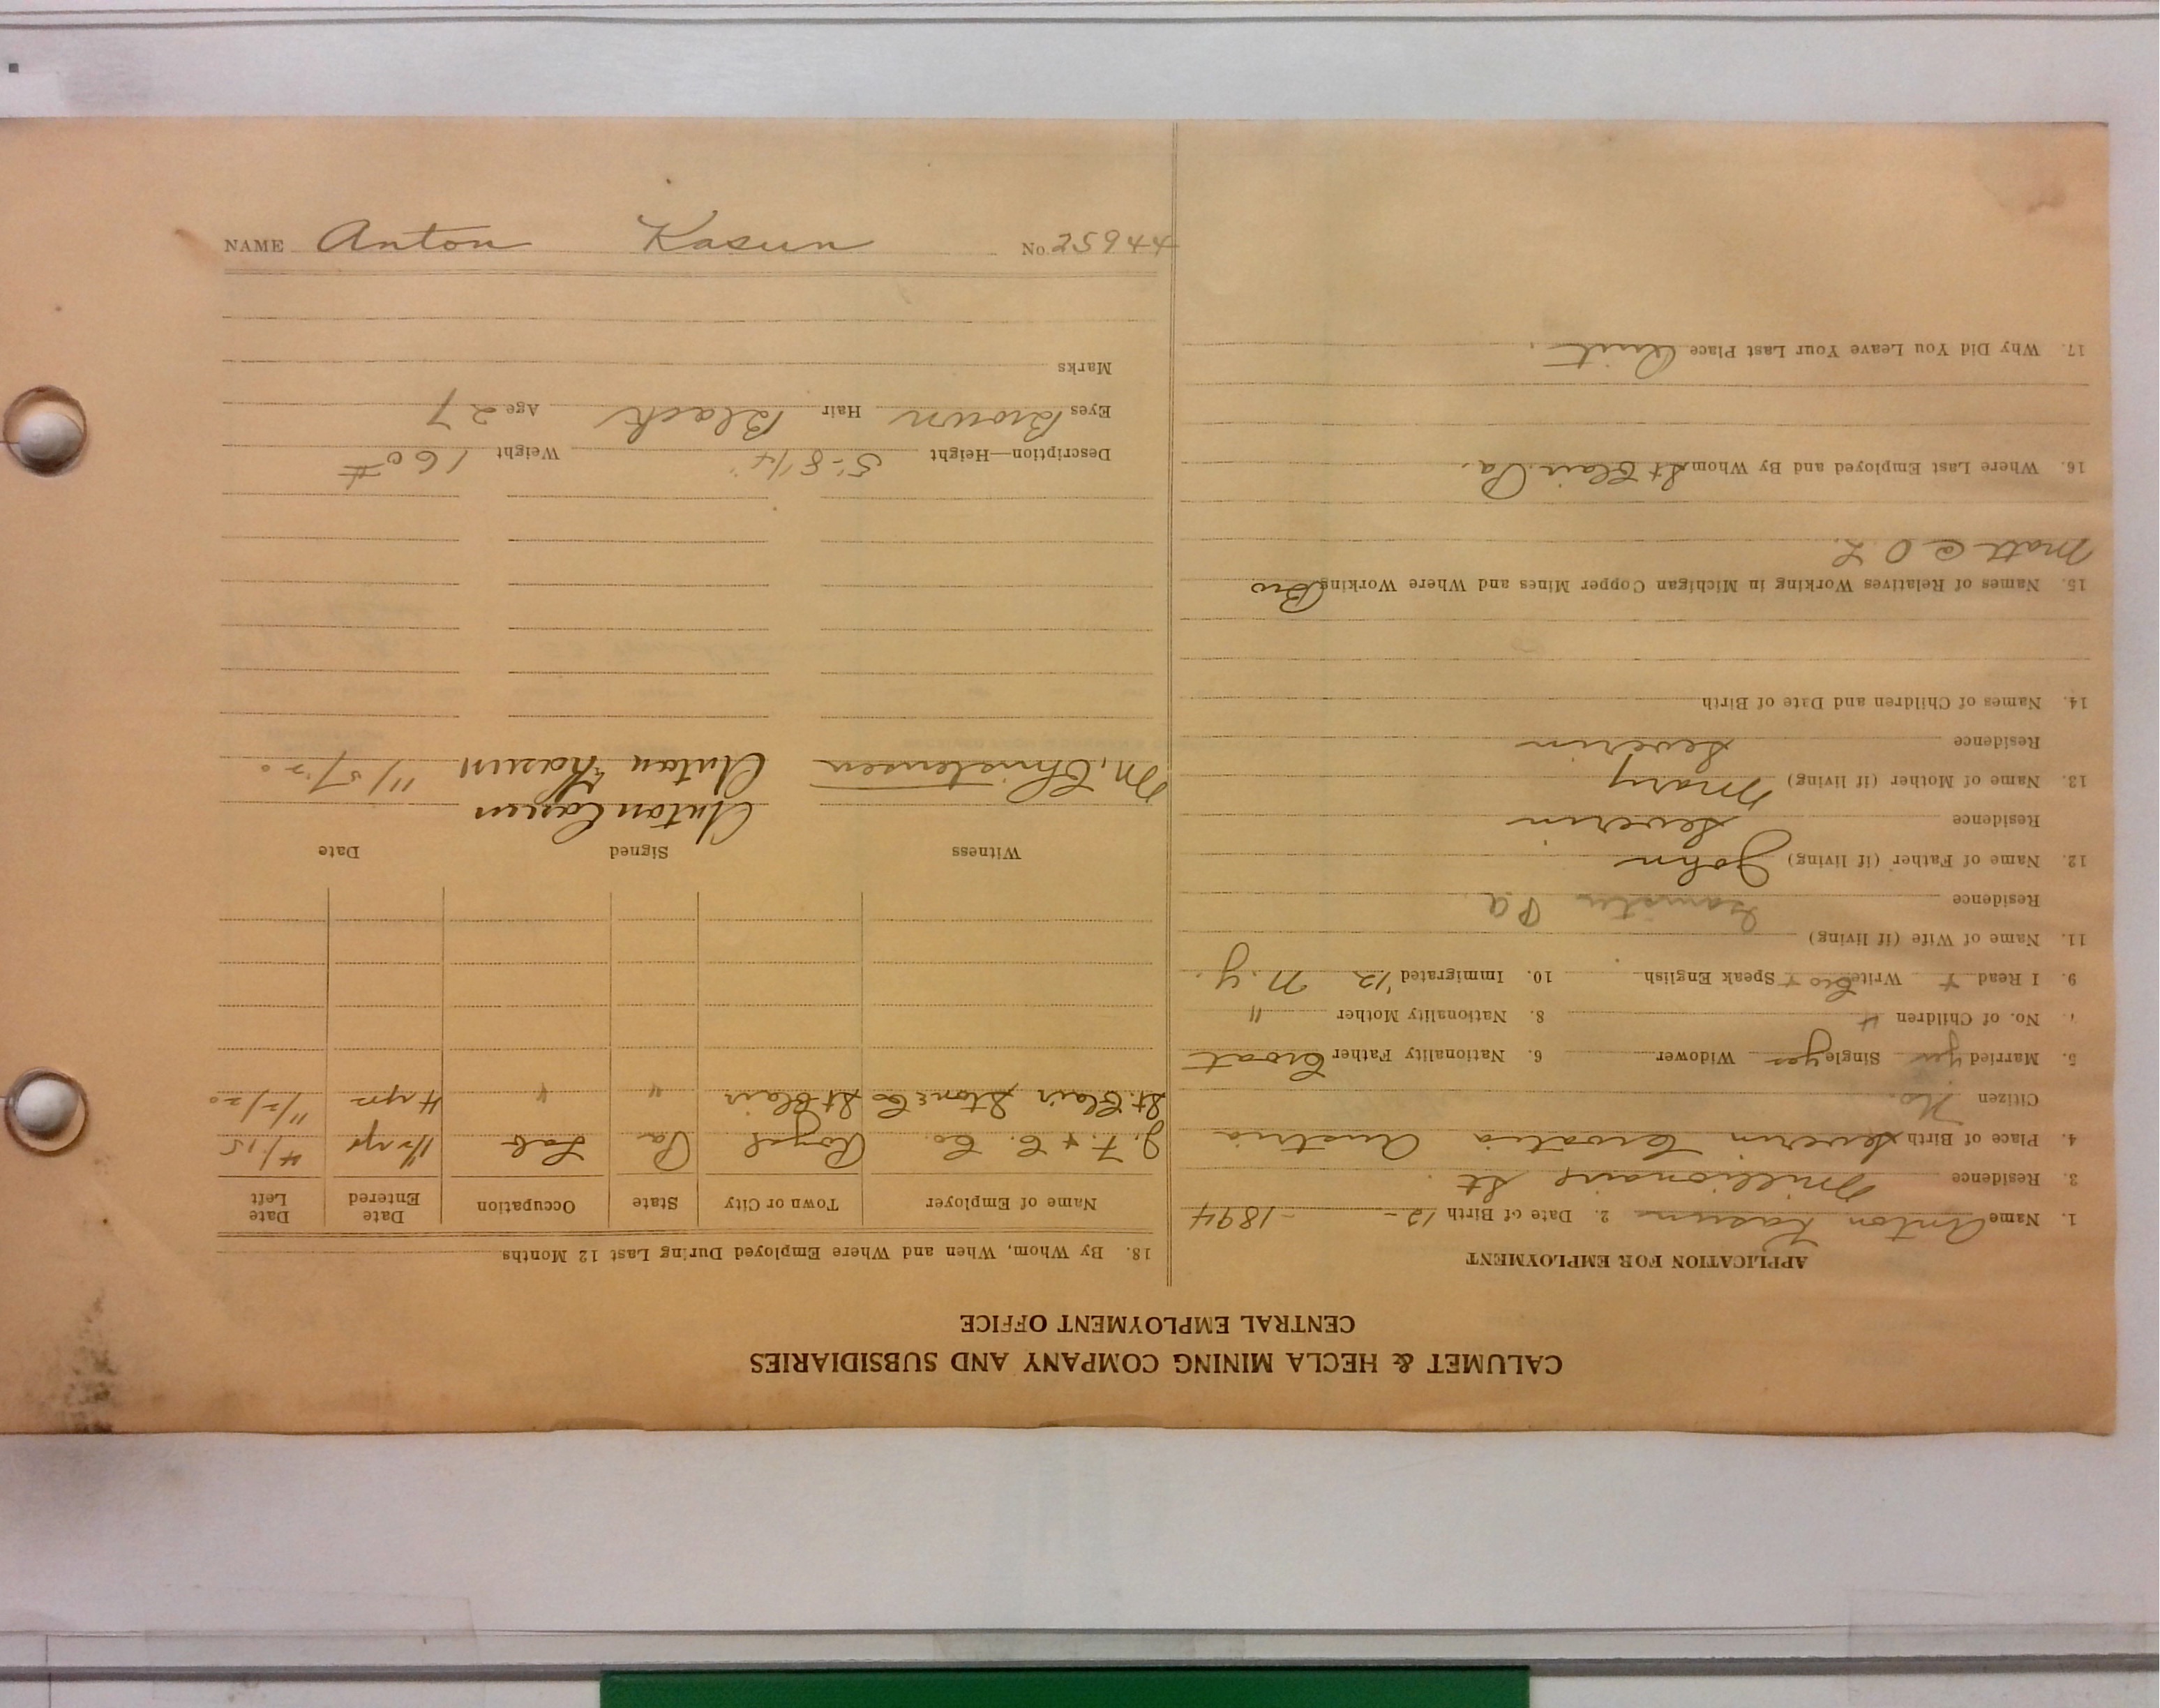 NAME Anton Kasun No. 25944
CALUMET & HECLA MINING COMPANY AND SUBSIDIARIES
CENTRAL EMPLOYMENT OFFICE
APPLICATION FOR EMPLOYMENT
1. Name Anton Kasun 2. Date of Birth 12 - - 1894
3. Residence Millionaire St.
4. Place of Birth Severin Croatia Austria
Citizen No.
5. Married Single yes Widower 6. Nationality Father Croat
7. No. of Children 4 8. Nationality Mother "
9. I Read + Write Cro + Speak English 10. Immigrated '12 N.Y.
11. Name of Wife (if living)
Residence Pa
12. Name of Father (if living) John
Residence Severin
13. Name of Mother (if living) Mary
Residence Severin
14. Names of Children and Date of Birth
15. Names of Relatives Working in Michigan Copper Mines and Where Working Bro
Matt @ O L.
16. Where Last Employed and By Whom St Clair Pa.
17. Why Did You Leave Your Last Place Quit.
18. By Whom, When and Where Employed During Last 12 Months
Name of Employer Town or City State Occupation Date Entered Date Left
J. F. & C. Co. Royal Pa Lab 4/15
St. Clair Stone Co St Clair " " 4 yrs 11/2/20
Witness Signed Date
Anton Casun
M. Christensen Anton Kasun 11/5/20
Description—Height 5'-8 1/4" Weight 160#
Eyes Brown Hair Black Age 27
Marks